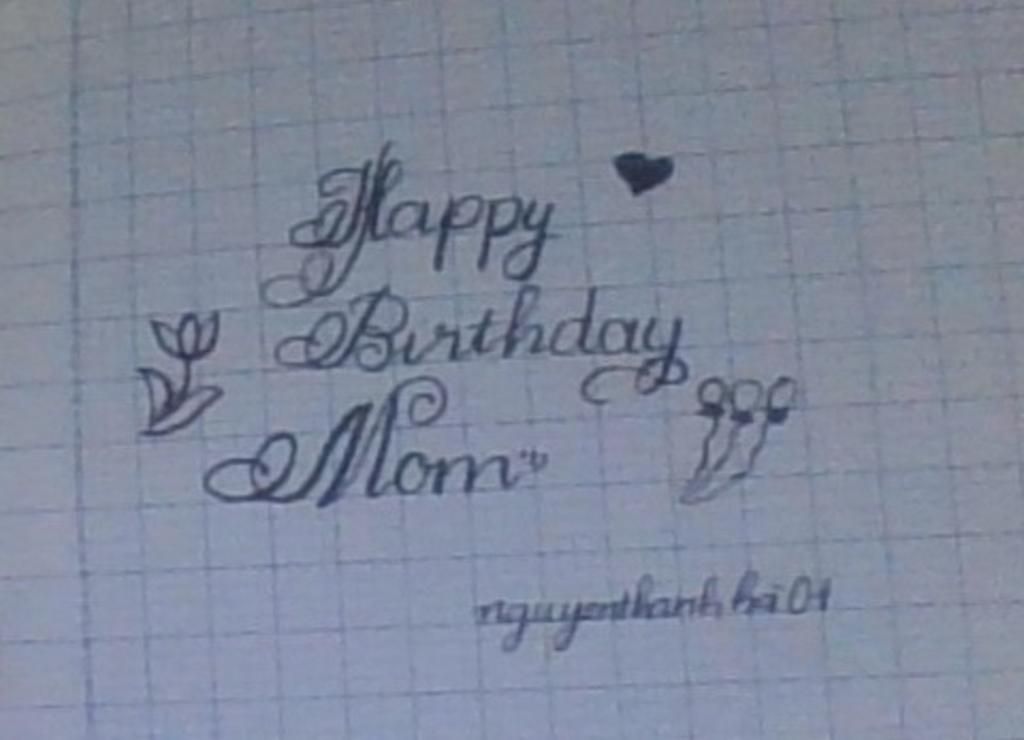 Happy
Birthday
Mom
nguyenthanhhai01